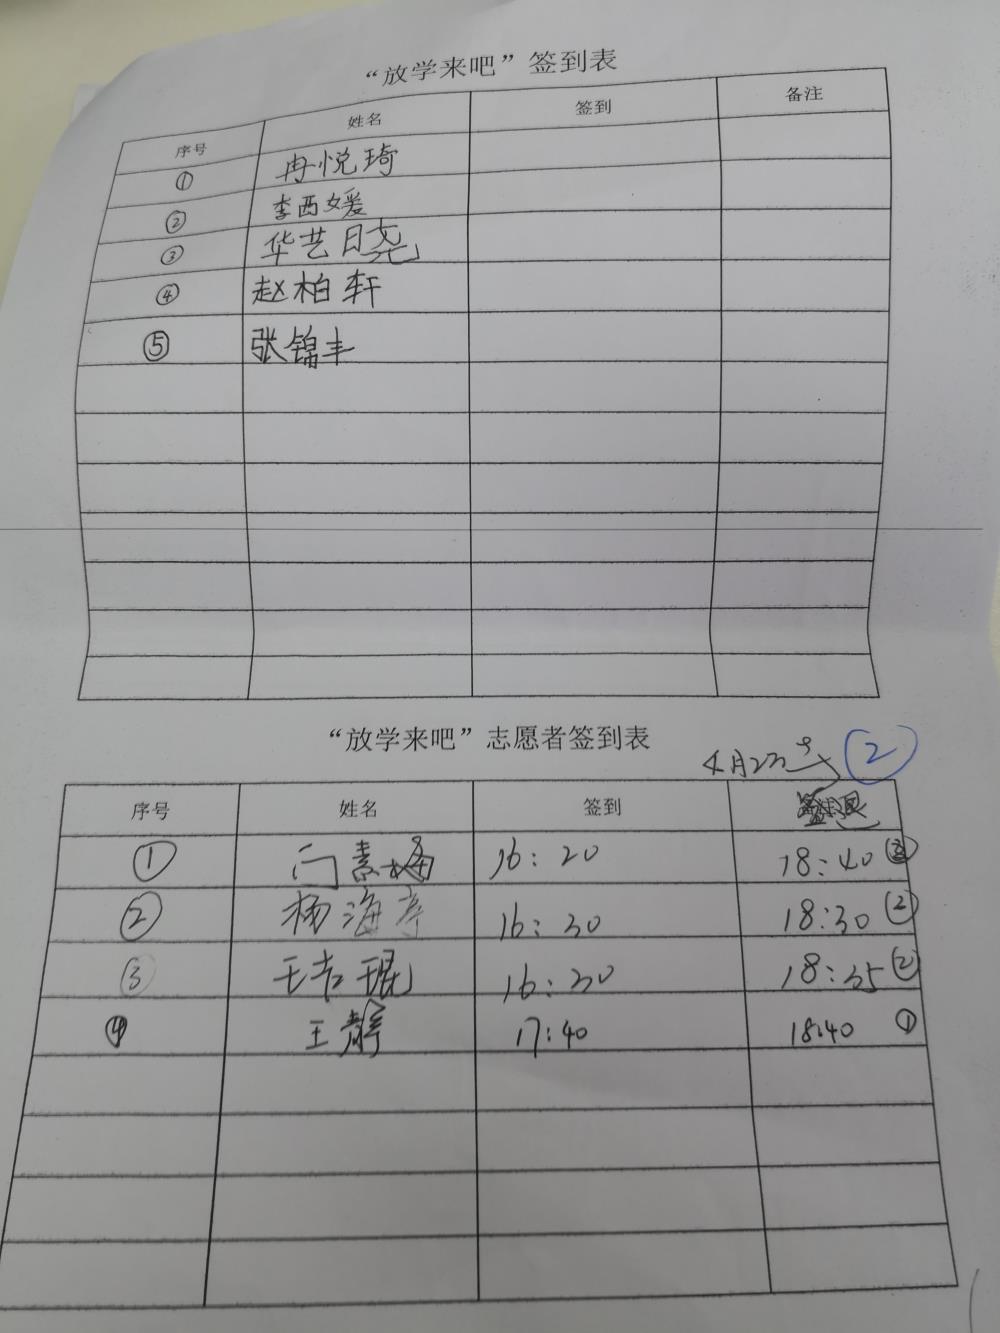 “放学来吧”签到表
序号 姓名 签到 备注
① 冉悦琦
② 李西媛
③ 华艺曦
④ 赵柏轩
⑤ 张锦丰
“放学来吧”志愿者签到表
4月22号 ②
序号 姓名 签到 签退
① 门素梅 16:20 18:40
② 杨海亭 16:30 18:30 ②
③ 王吉琨 16:30 18:35 ②
④ 王静 17:40 18:40 ①